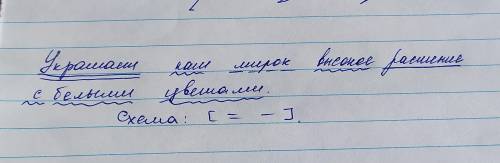 Украшает наш мирок высокое растение
с белыми цветами.
Схема: [ = - ].